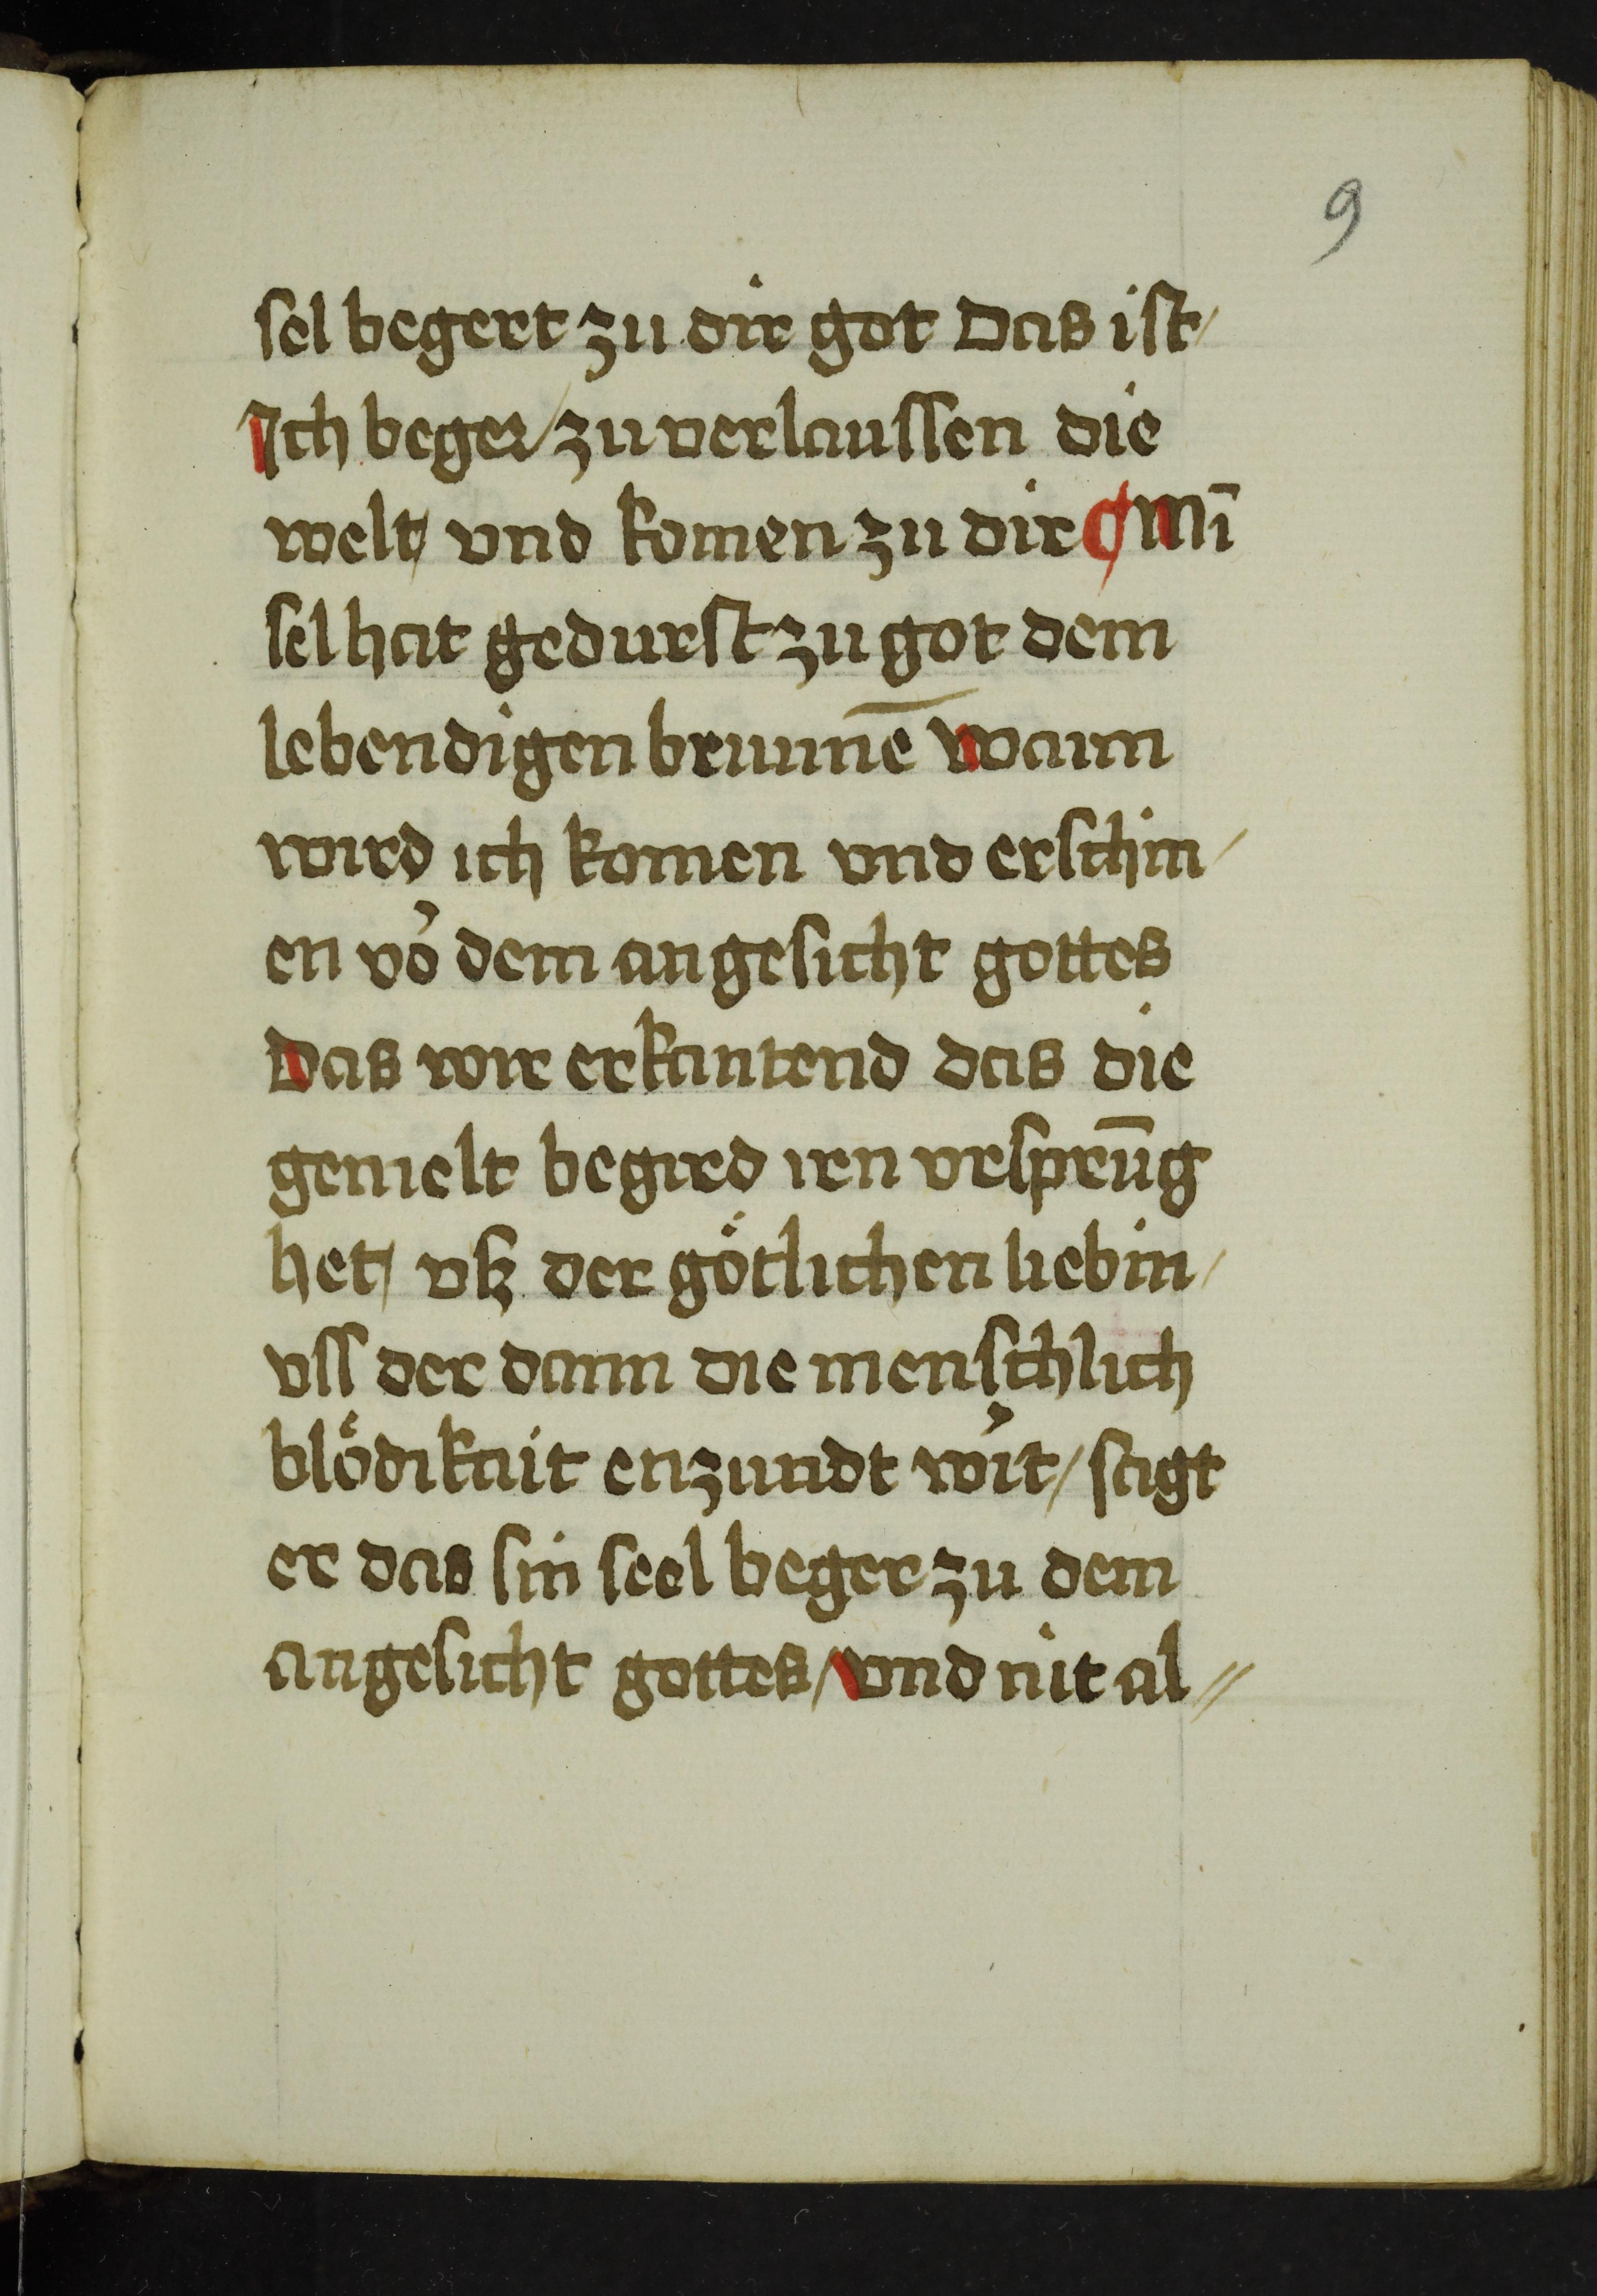 9
sel begert zu dir got Das ist/
Ich beger/ zu verlaussen die
welt/ vnd komen zu dir ¶ Mī
sel hat gedurst zu got dem
lebendigen brunnē wann
wird ich komen vnd erschin/
en vo᷑ dem angesicht gottes
Das wir erkantend das die
gemelt begird irn vrsprūg
het/ vſz der götlichen liebin/
vss der dann die menschlich
blödikait enzundt wi᷑t/ sagt
er das sin seel beger zu dem
angesicht gottes/ vnd nit al//